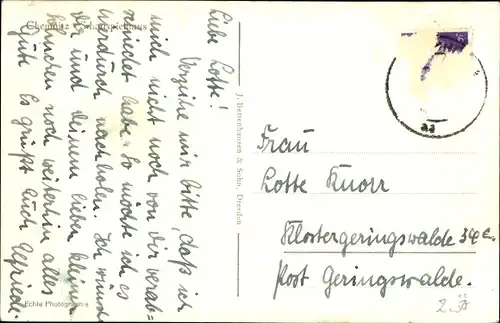 Chemnitz Schauspielhaus
Liebe Lotte!
Verzeihe mir bitte, daß ich
mich nicht noch von Dir verab=
schiedet habe. So möchte ich es
hierdurch nachholen. Ich wünsche
Dir und deinem lieben kleinen
noch weiterhin alles
Gute. Es grüßt Euch Elfriede.
Echte Photographie
J. Bettenhausen & Sohn, Dresden
Frau
Lotte Knorr
Klostergeringswalde 34c.
Post Geringswalde.